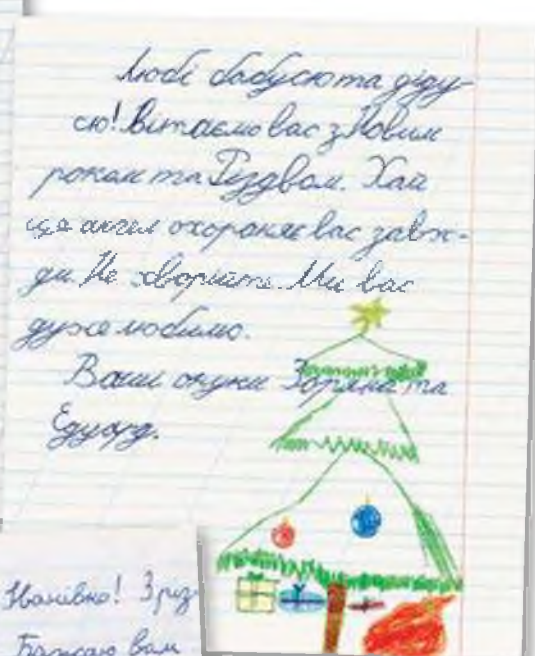 Любі бабусю та діду-
сю! Вітаємо вас з Новим
роком та Різдвом. Хай
ще ангел охороняє вас завж-
ди. Не хворійте. Ми вас
дуже любимо.
Ваші онуки Зоряна та
Едуард.
Іванівно! З різ-
Бажаю вам